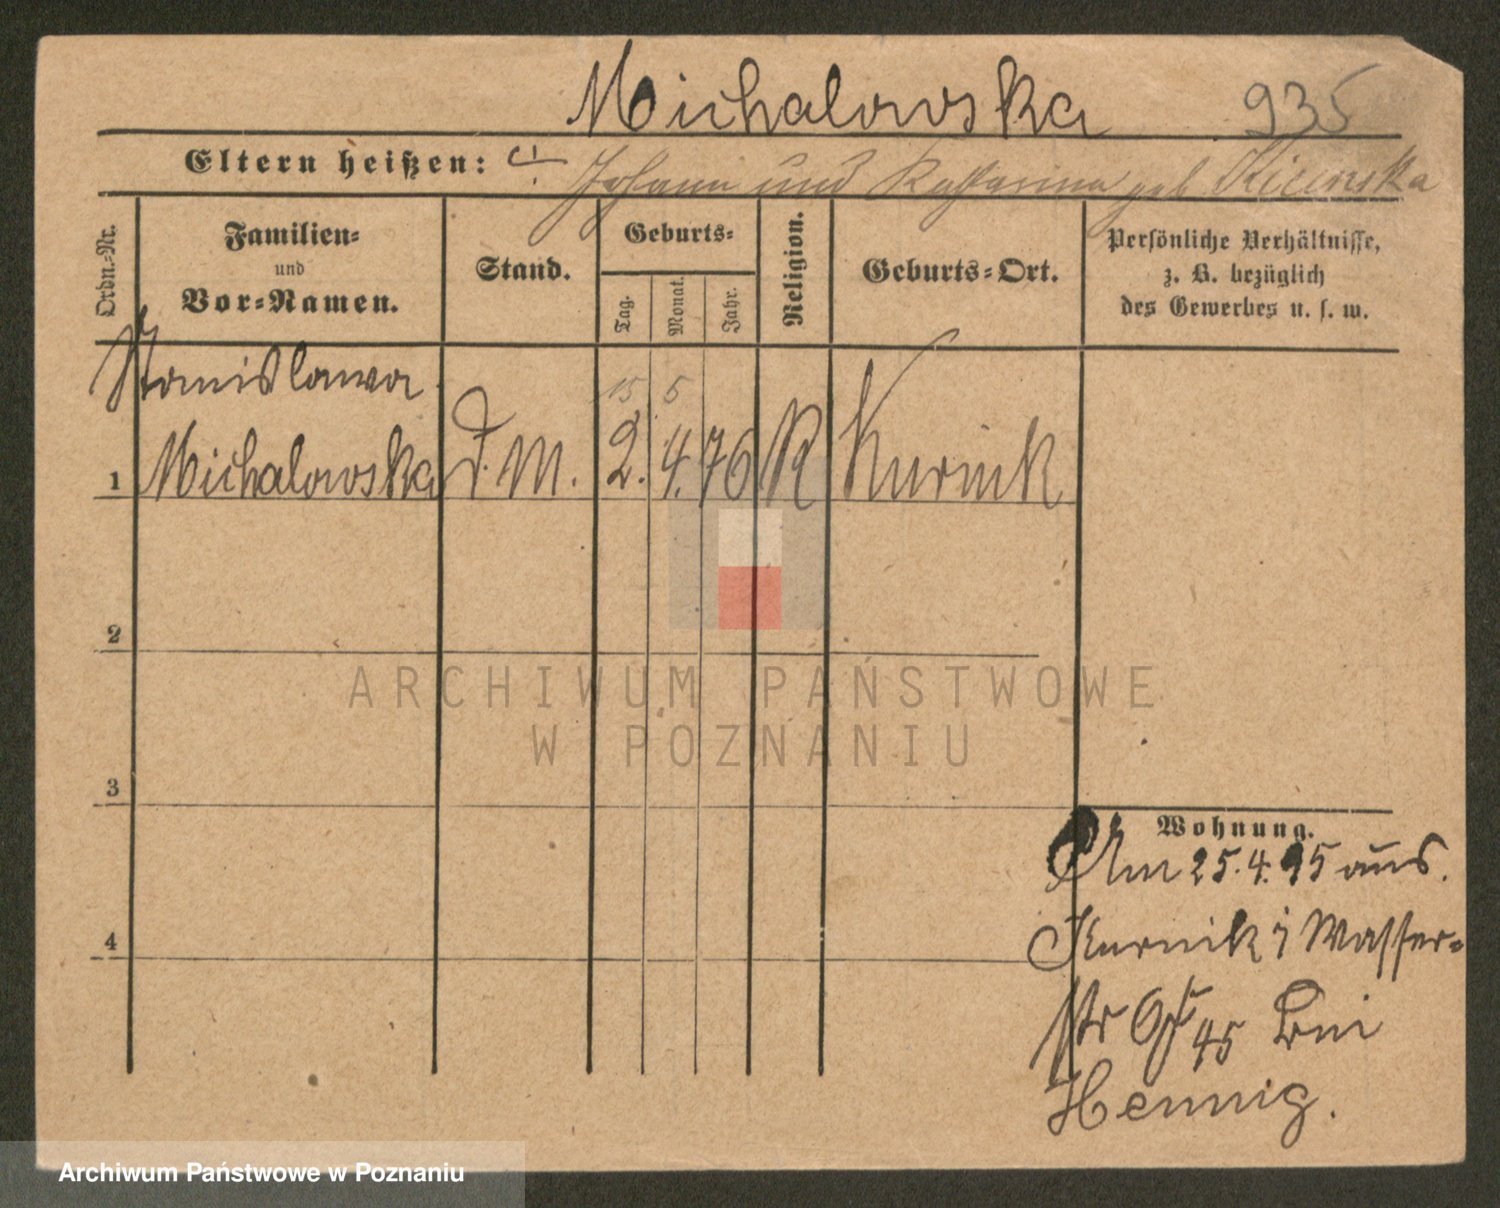 Michalowska 935
Eltern heißen: Johann und Katharina geb
Ordn.-Nr.
Familien-
und
Vor-Namen.
Stand.
Geburts-
Tag.
Monat.
Jahr.
Religion.
Geburts-Ort.
Persönliche Verhältnisse,
z. B. bezüglich
des Gewerbes u. s. w.
Stanislawa
15 5
1 Michalowska d. M. 2. 4. 76 K Kurnik
2
3
4
Wohnung.
Am 25.4.95 aus
Kurnik Wasser-
str 45 bei
Hennig.
ARCHIWUM PAŃSTWOWE
W POZNANIU
Archiwum Państwowe w Poznaniu